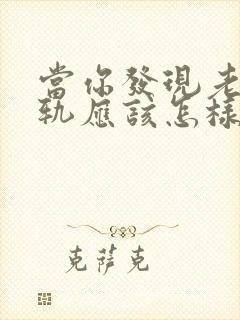 當你發現老
軌應該怎樣
克薩克